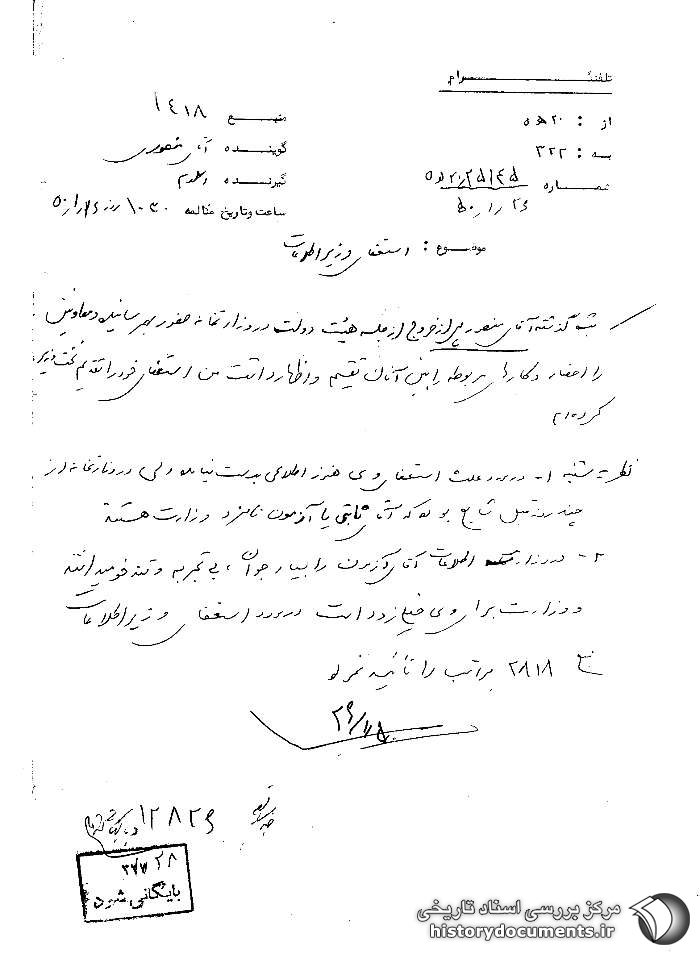 تلفنگرام
از : ۲۰ه۵
به : ۳۲۲
شماره
۵۰/۱/۲۶
منبع ۱۴۱۸
گوینده آقای منصوری
گیرنده
ساعت و تاریخ مکالمه ۱۰۳۰ روز ۵۰/۱/۲۶
موضوع : استعفای وزیر اطلاعات
شب گذشته آقای منصور پس از خروج از جلسه هیئت دولت در وزارتخانه حضور بهم رسانیده و معاونین
را احضار و کارهای مربوطه را بین آنان تقسیم و اظهار داشت من استعفای خود را تقدیم نخست وزیر
کرده‌ام
نظریه شنبه ۱- در مورد علت استعفای وی هنوز اطلاعی بدست نیامده ولی در وزارتخانه از
چند روز قبل شایع بود که آقای ثابتی یا آزمون نامزد وزارت هستند
۲- در وزارت اطلاعات آقای آزمون را بسیار جوان ، بی تجربه و تند خو میدانند
و وزارت برای وی خیلی زود است در مورد استعفای وزیر اطلاعات
منبع ۲۸۱۸ مراتب را تأیید نمود
۱۲۸۲۶
۲۸
بایگانی شود
مرکز بررسی اسناد تاریخی
historydocuments.ir